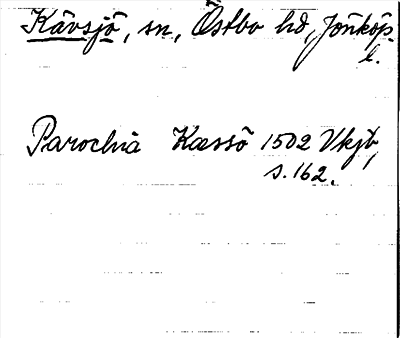 Kävsjö, sn, Östbo hd, Jönköp.
l.
Parochia Kæssö 1502 Vkjb,
s. 162.